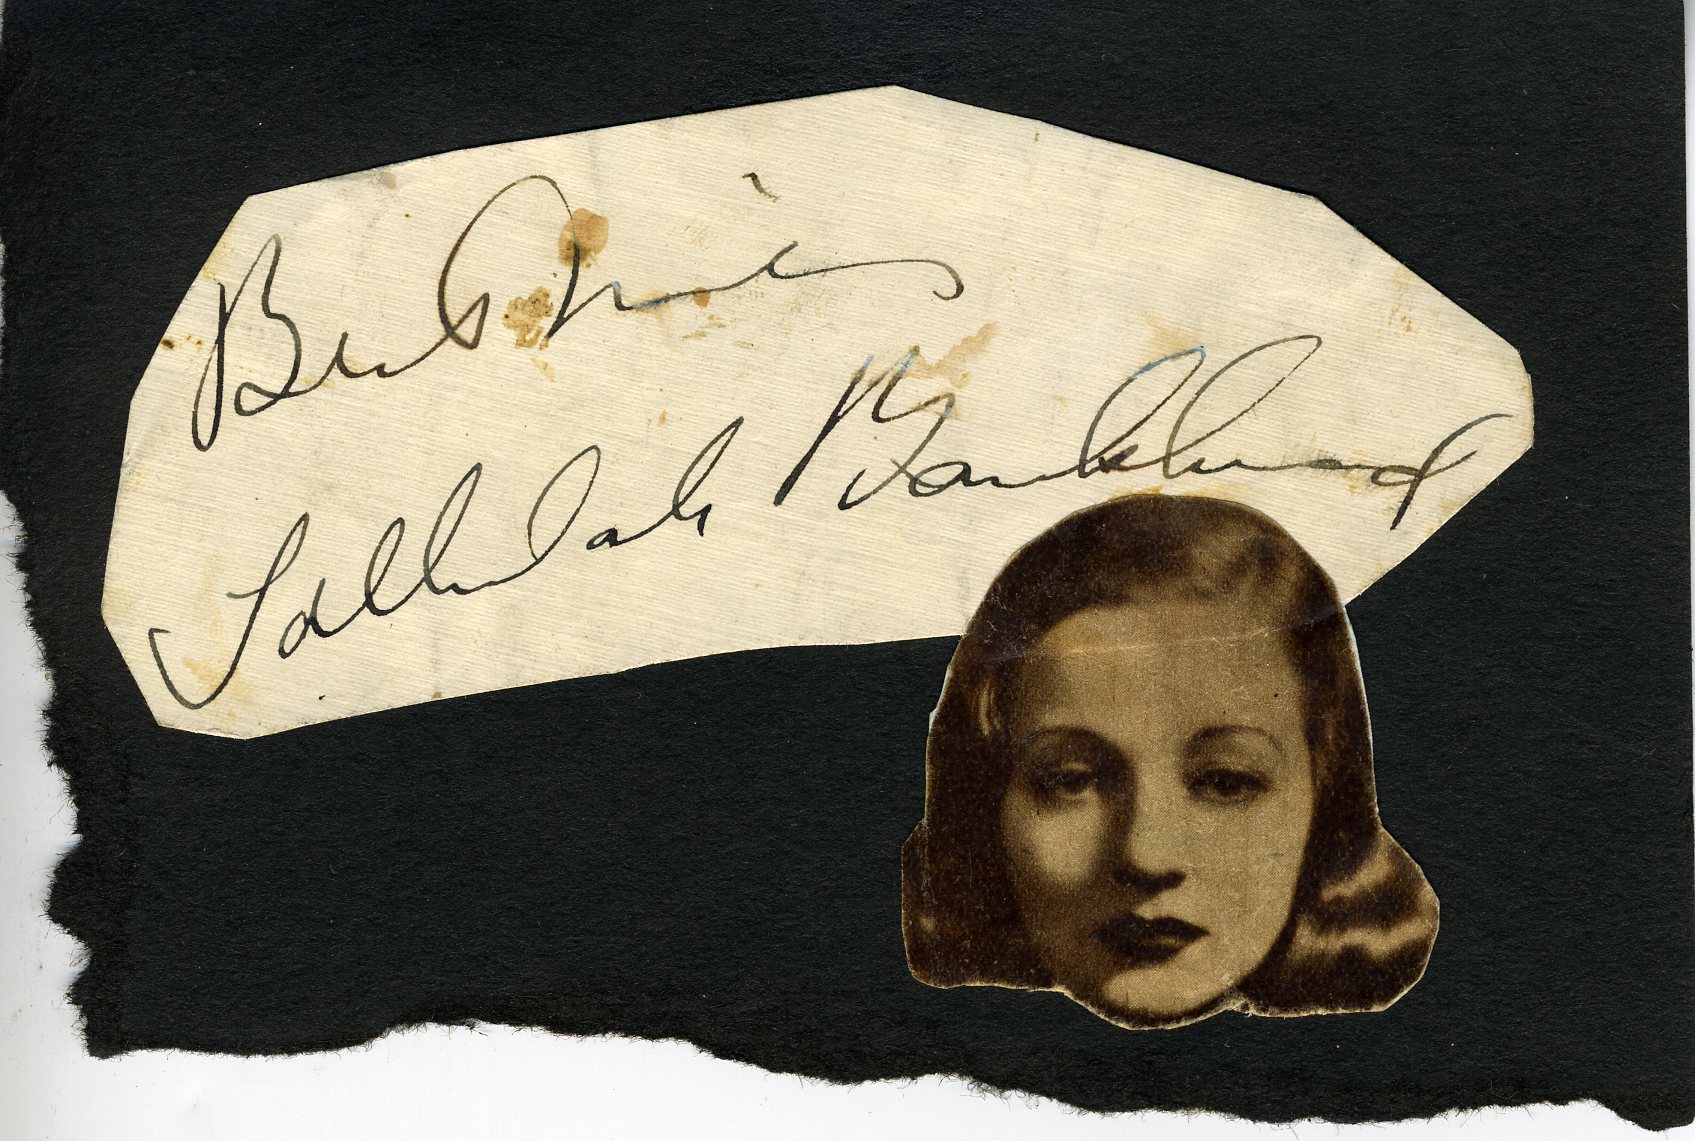 Best Wishes
Tallulah Bankhead